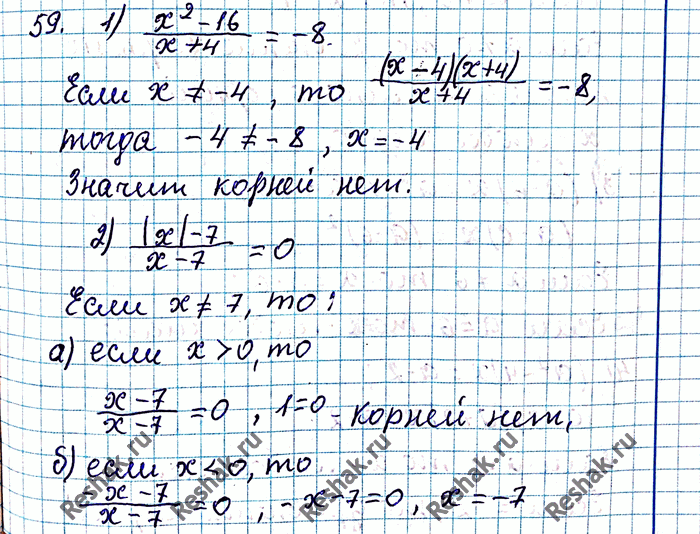 59. 1) (x² - 16)/(x + 4) = -8.
Если x ≠ -4, то ((x - 4)(x + 4))/(x + 4) = -8,
тогда -4 ≠ -8, x = -4
Значит корней нет.
2) (|x| - 7)/(x - 7) = 0
Если x ≠ 7, то:
а) если x > 0, то
(x - 7)/(x - 7) = 0, 1 = 0 - корней нет,
б) если x < 0, то
(-x - 7)/(x - 7) = 0, -x - 7 = 0, x = -7
Reshak.ru Reshak.ru Reshak.ru Reshak.ru Reshak.ru